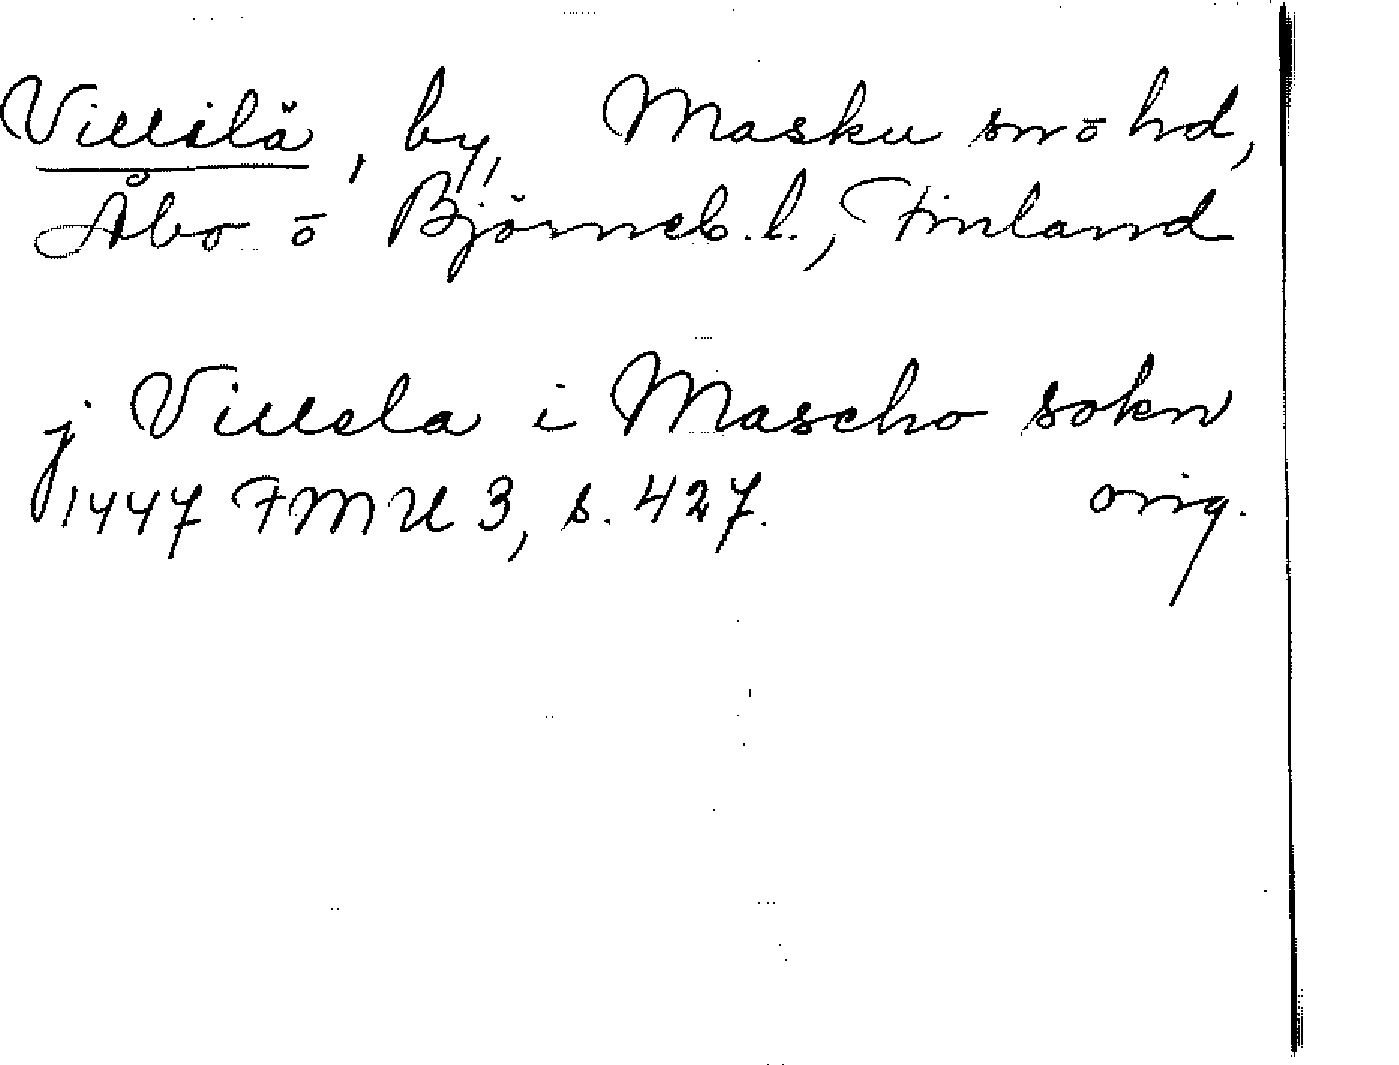 Villilä, by, Masku sn ō hd,
Åbo ō Björneb. l., Finland
j Villela i Mascho sokn
1447 FMU 3, s. 427. orig.